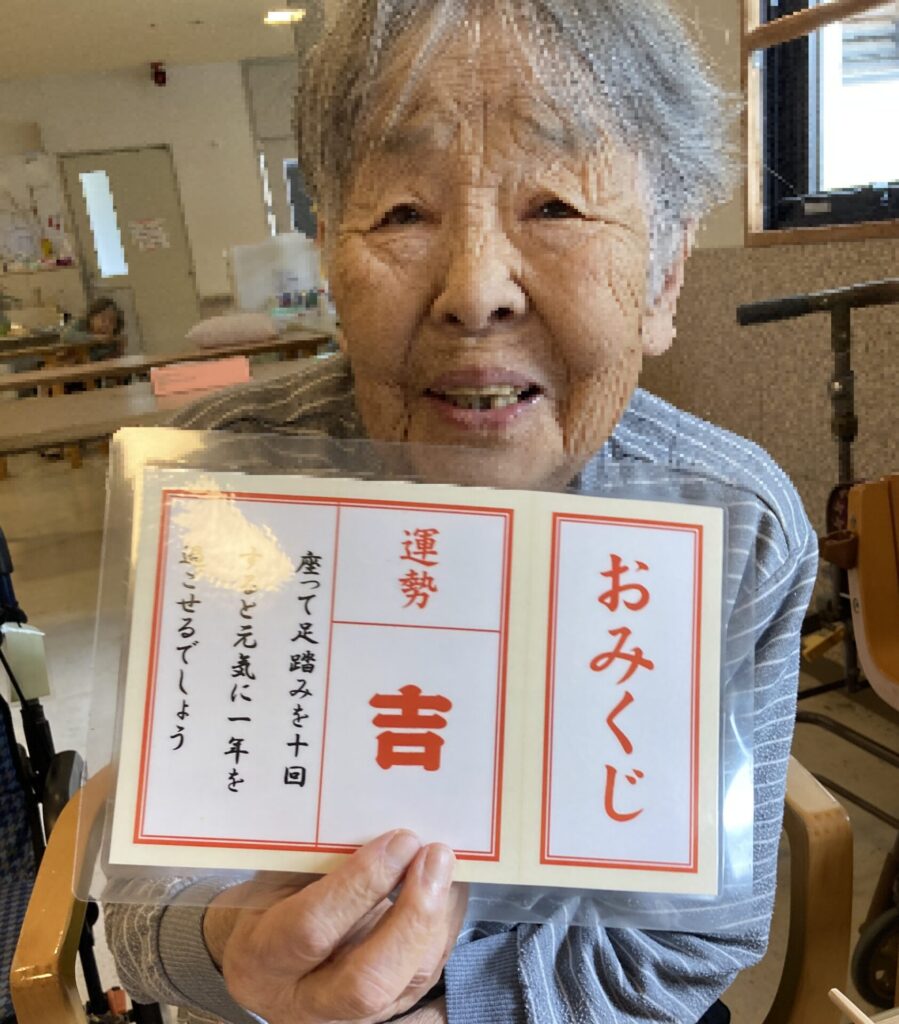 おみくじ
運勢
吉
座って足踏みを十回
すると元気に一年を
過ごせるでしょう